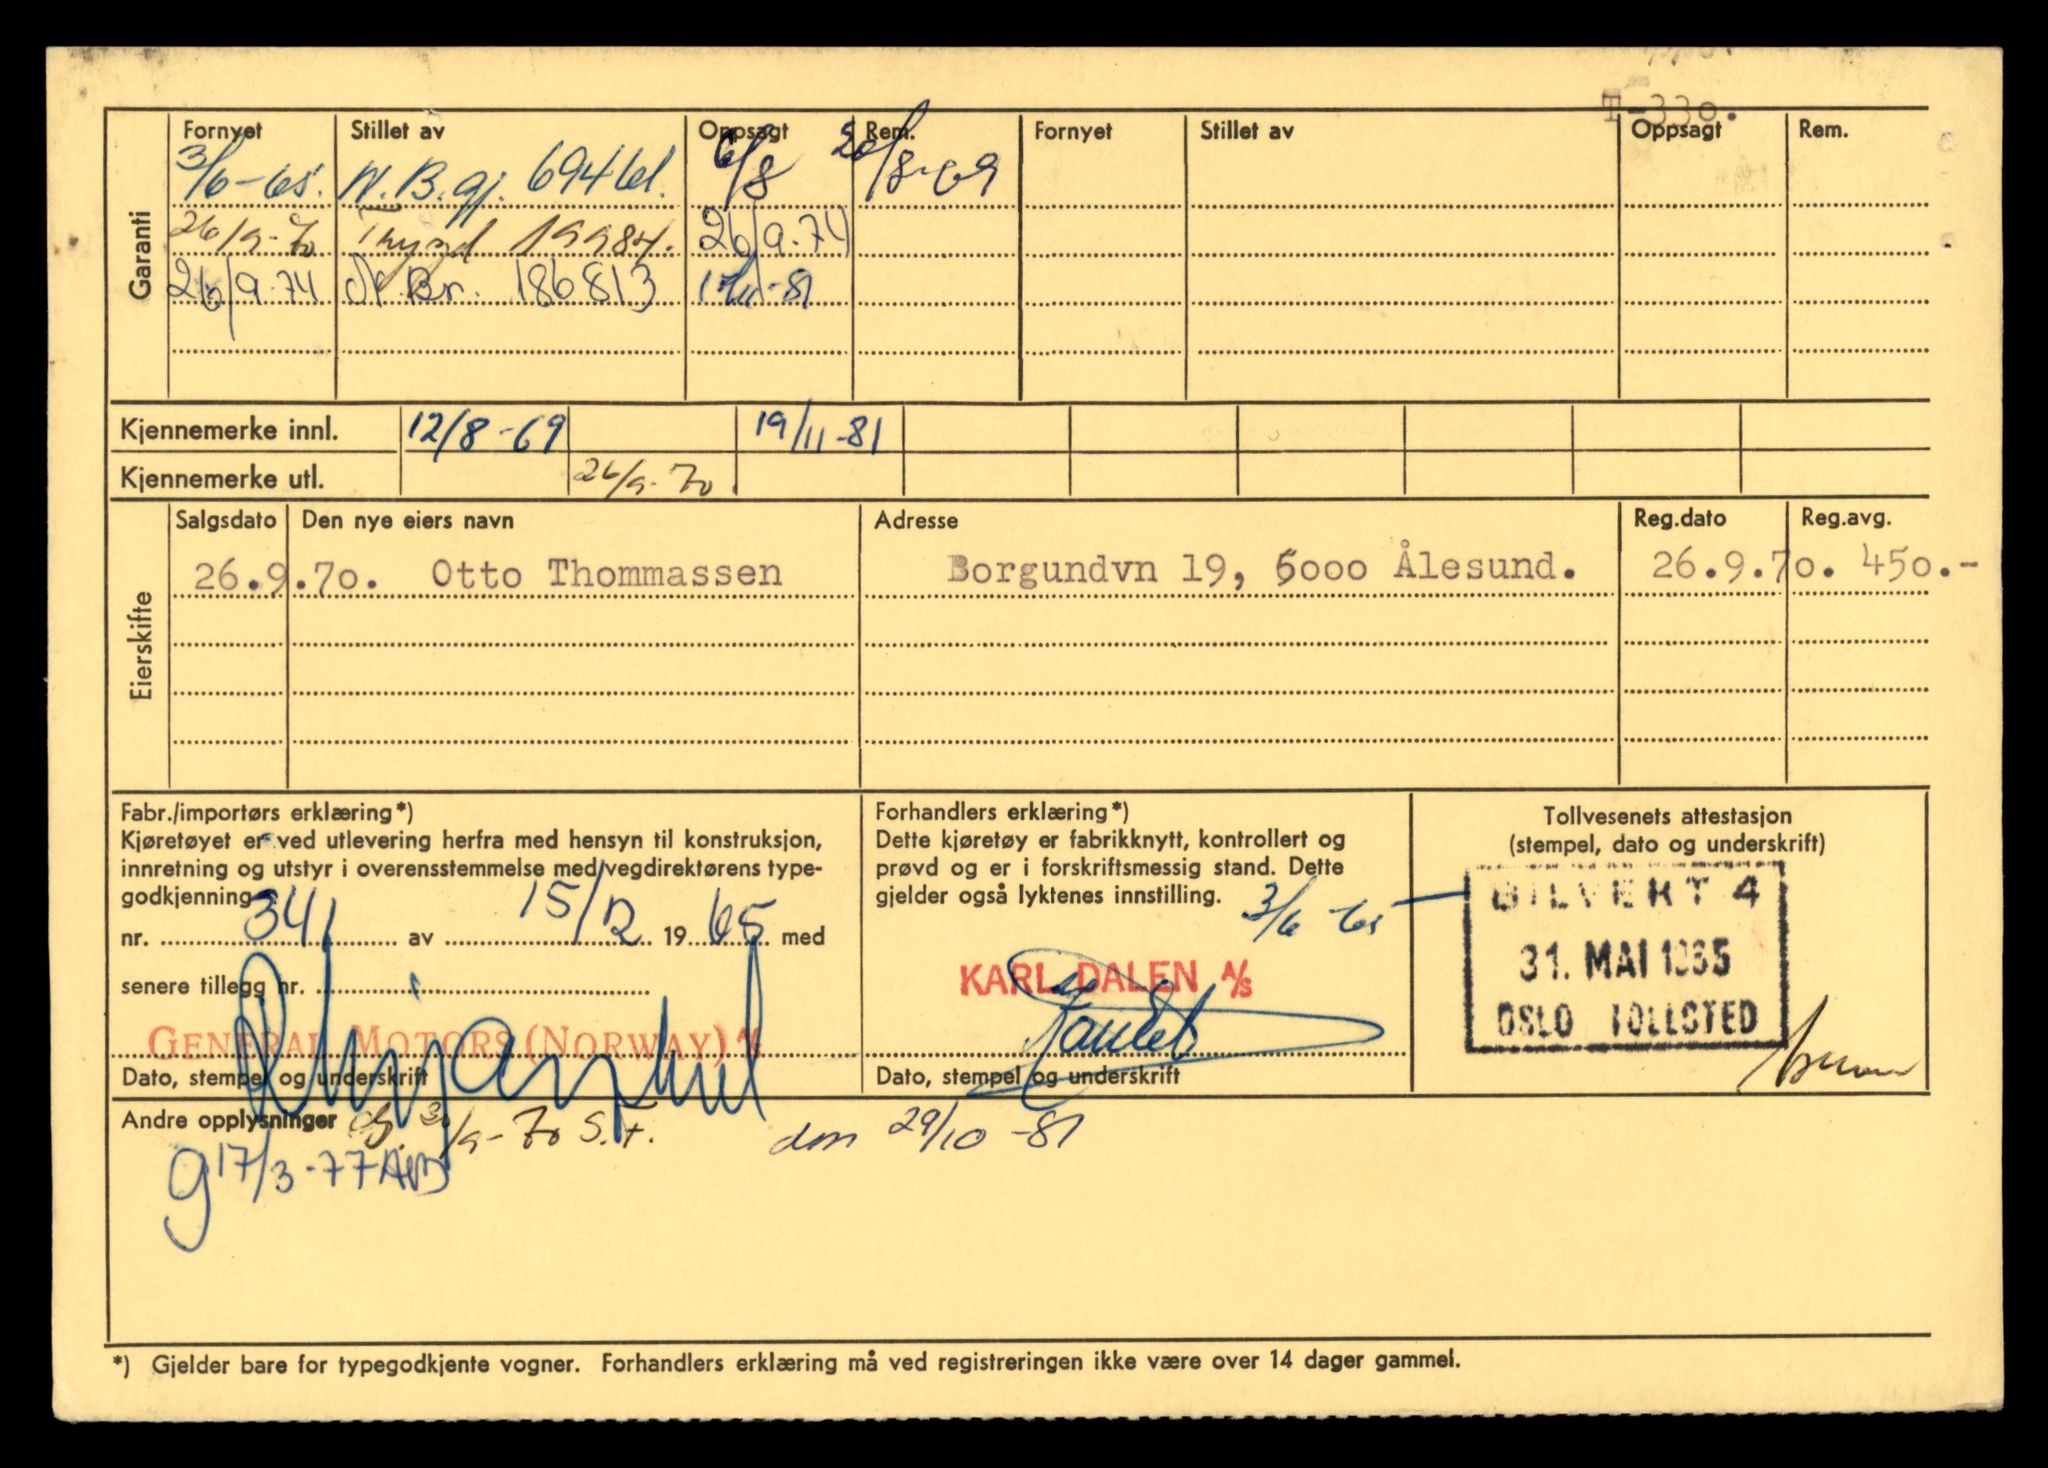 T-330.
Garanti
Fornyet Stillet av Oppsagt Rem. Fornyet Stillet av Oppsagt Rem.
3/6-65. N.B.gj. 69461. 6/8 20/8-69
26/9-70 Trygd 19984. 26/9-74
26/9-74 N.Br. 186813 17/11-81
Kjennemerke innl. 12/8-69 19/11-81
Kjennemerke utl. 26/9-70.
Eierskifte
Salgsdato Den nye eiers navn Adresse Reg.dato Reg.avg.
26.9.70. Otto Thommassen Borgundvn 19, 6000 Ålesund. 26.9.70. 450.-
Fabr./importørs erklæring*)
Kjøretøyet er ved utlevering herfra med hensyn til konstruksjon,
innretning og utstyr i overensstemmelse med vegdirektørens type-
godkjenning
nr. 341 av 15/12 1965 med
senere tillegg nr.
GENERAL MOTORS (NORWAY) A/S
Dato, stempel og underskrift
Forhandlers erklæring*)
Dette kjøretøy er fabrikknytt, kontrollert og
prøvd og er i forskriftsmessig stand. Dette
gjelder også lyktenes innstilling.
3/6-65
KARL DALEN A/S
Dato, stempel og underskrift
Tollvesenets attestasjon
(stempel, dato og underskrift)
BILVERT 4
31. MAI 1965
OSLO TOLLSTED
Andre opplysninger 30/9-70 S.F. dm 29/10-81
g 17/3-77
*) Gjelder bare for typegodkjente vogner. Forhandlers erklæring må ved registreringen ikke være over 14 dager gammel.